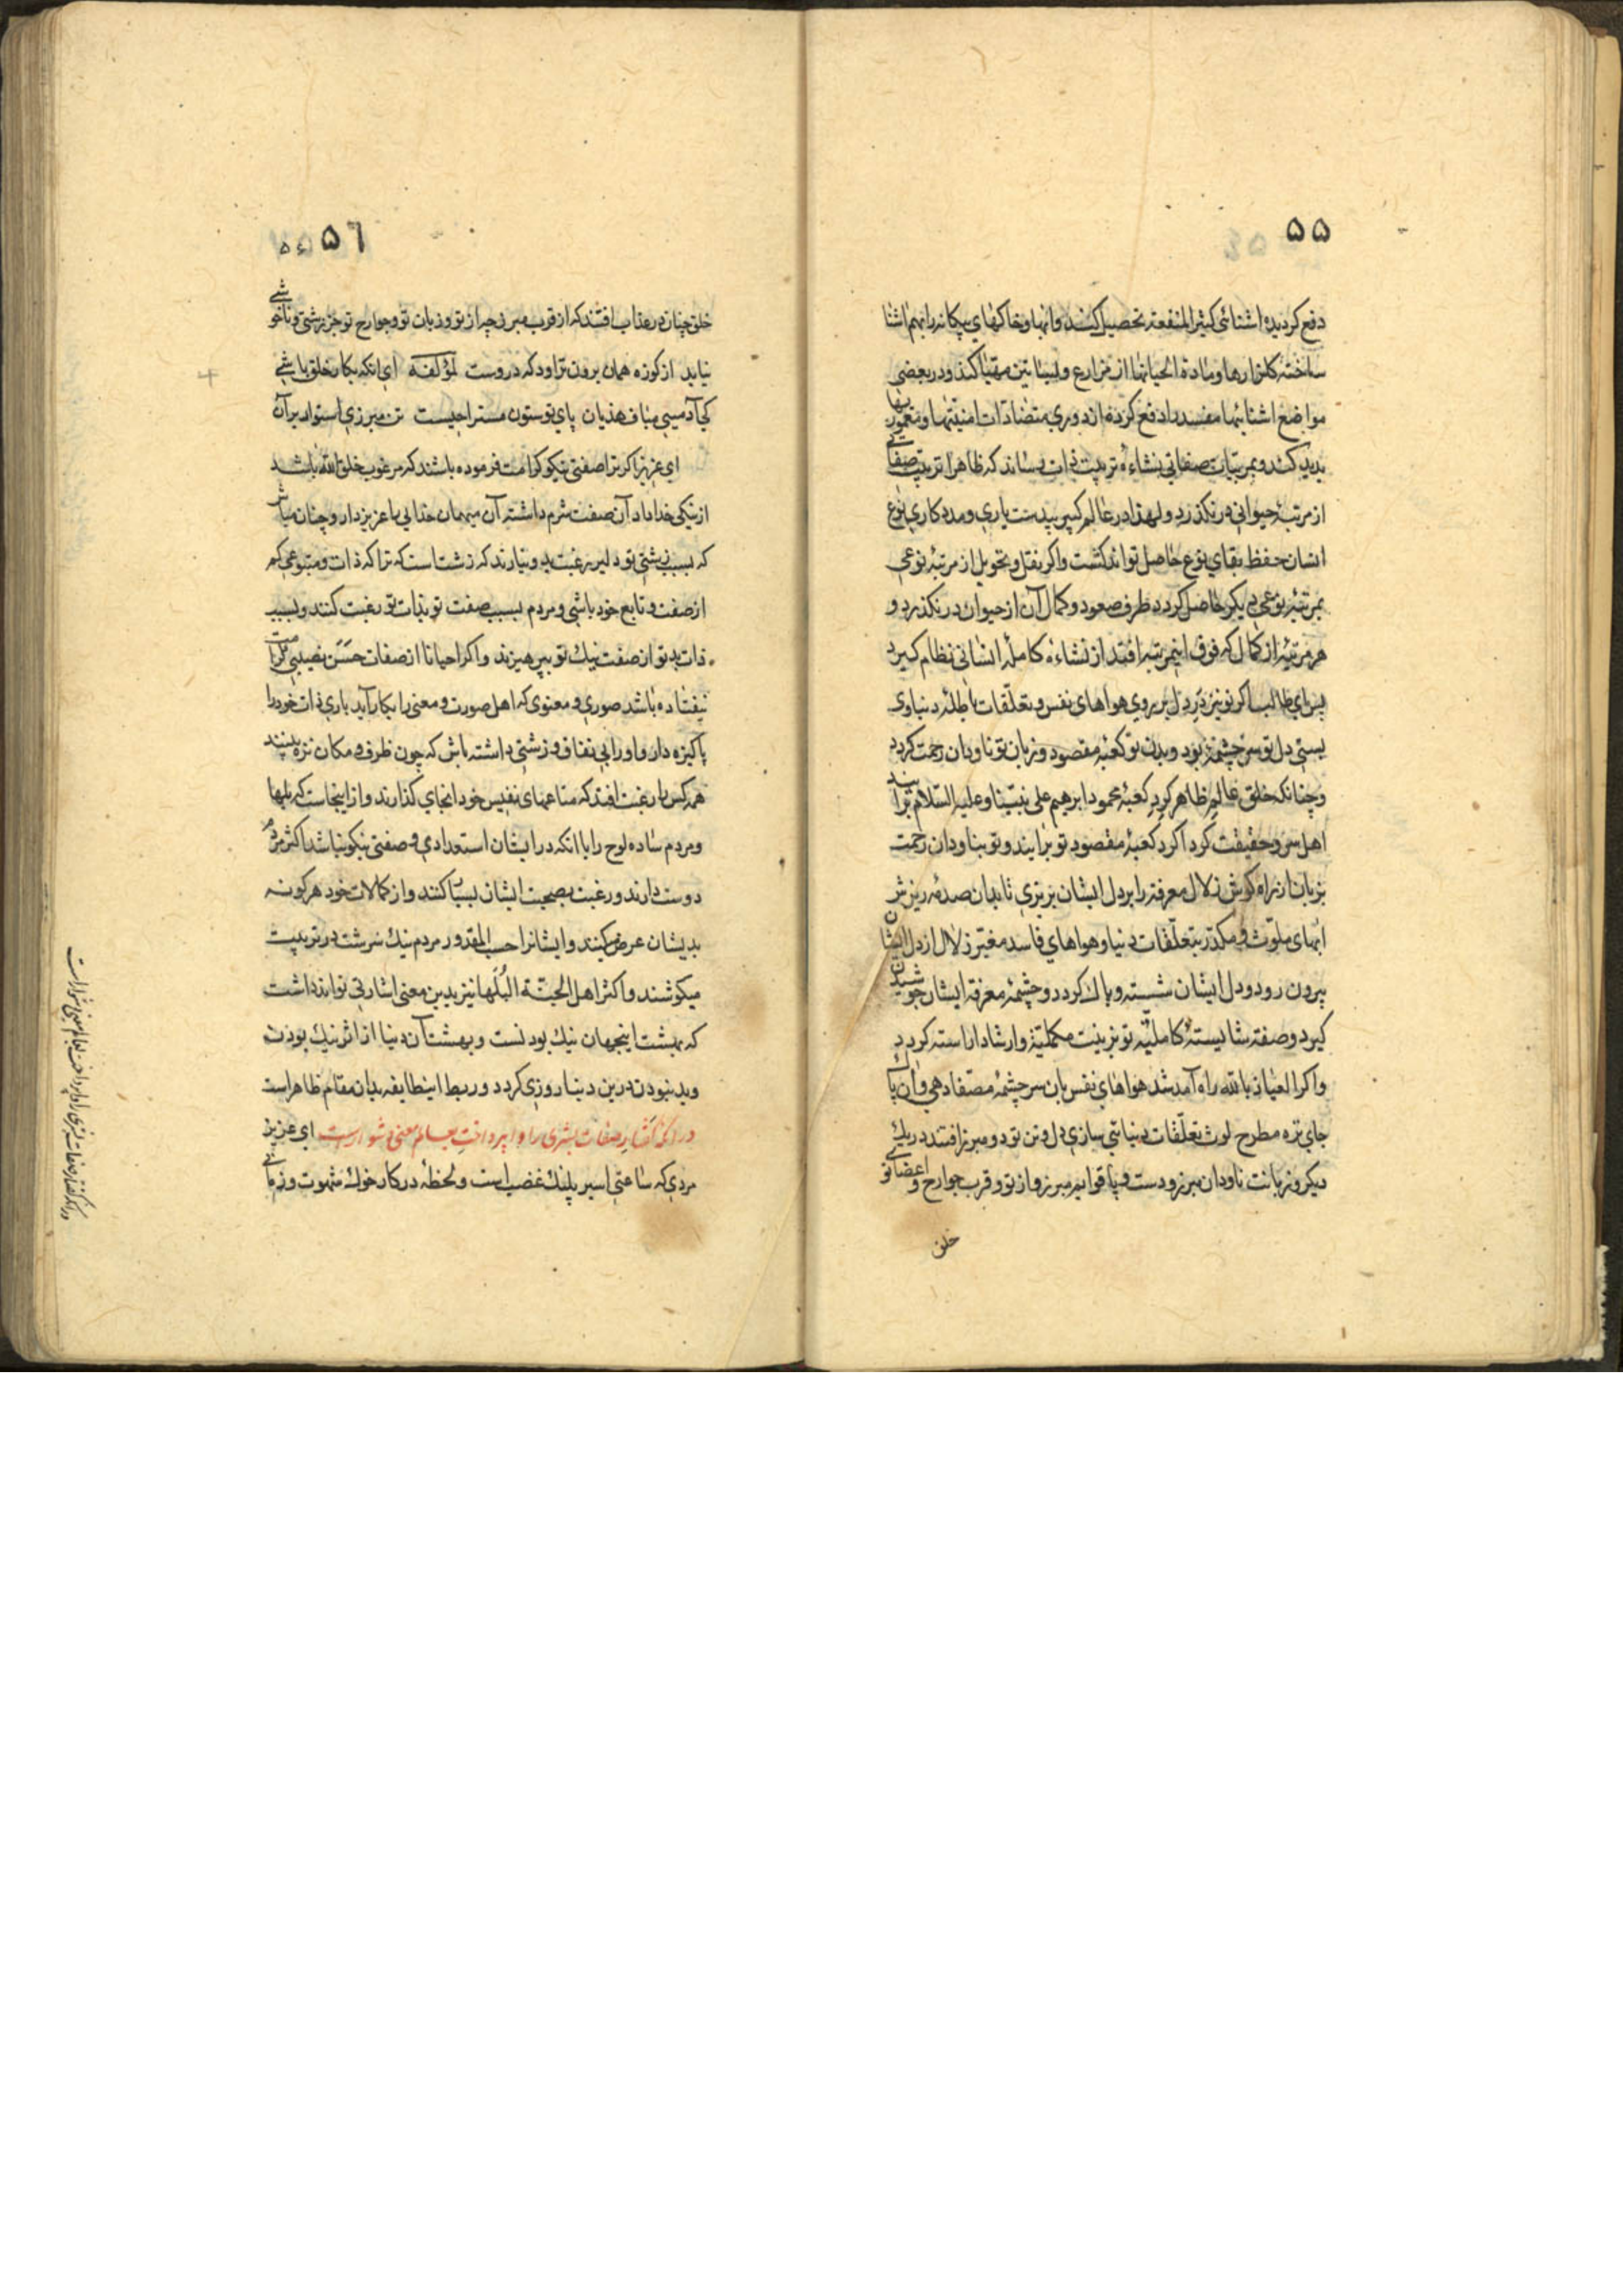 ۵۵
دفع کردیده اشنائی کثیر المنفعة تحصیل کنند وابها وخاکهای بیکانه را بهم اشنا
ساخته کلزارها ومادة الحیاتها از مزارع وبساتین مهیا کند ودر بعضی
مواضع اشنائیها مفسد را دفع کرده از دوری متضادات امنیتها ومعموریها
پدید کند وبمرتبیات صفاتی نشاءه تربیت ذات رساند که ظاهرا تربیت صفاتی
از مرتبۀ حیوانی در نکذرد ولهذا در عالم کبیر بیدست یاری ومدد کاری نوع
انسان حفظ بقای نوع حاصل تواند کشت واکر نقل وتحویل از مرتبۀ نوعی
بمرتبۀ نوعی دیکر حاصل کردد ظرف صعود وکمال آن از حیوان در نکذرد و
هر مرتبۀ از کمال که فوق اینمرتبه افتد از نشاءه کاملۀ انسانی نظام کیرد
پس ای طالب اکر تو نیز در دل بر روی هواهای نفس وتعلقات باطلۀ دنیاوی
بستی دل تو سرچشمه بود وبدن تو کعبۀ مقصود وزبان تو ناودان رحمت کردد
وچنانکه خلق عالم ظاهر کرد کعبۀ محمود ابرهیم علی نبینا وعلیه السلام برآیند
اهل سر وحقیقت کرد اکرد کعبۀ مقصود تو برایند وتو بناودان رحمت
بزبان از راه کوش زلال معرفة را بر دل ایشان بریزی تا بدان صدمه ریزش
ابهای ملوث ومکدر بتعلقات دنیا وهواهای فاسد مغیر زلال از دل ایشان
بیرون رود ودل ایشان شسته وپاک کردد وچشمۀ معرفة ایشان جوشیدن
کیرد وصفة شایستۀ کاملیۀ تو بزینت مکملیة وارشاد اراسته کردد
واکر العیاذ بالله راه آمد شد هواهای نفس بان سرچشمۀ مصفا دهی وآن پاک
جای نزه مطرح لوث تعلقات دنیاتی سازی دل وتن تو دو مبرز افتند در یک
دیکر وزبانت ناودان مبرز ودست وپا قوایم مبرز واز تو وقرب جوارح واعضای تو
خلق
۵۶
خلق چنان در عذاب افتند که از قرب مبرز چه از تو وزبان تو وجوارح تو جز زشتی وناخوشی
نیاید از کوزه همان برون تراود که دروست لمؤلفه ای انکه بکار خلق باشی
کج آدمیی مباف هذیان پای تو ستون مستراحیست تن مبرزی استوار بر آن
ای عزیز اکر ترا صفتی نیکو کرامت فرموده باشند که مرغوب خلق الله باشد
از نیکی خداداد آن صفت شرم داشته آن میهمان خدایی را عزیز دار وچنان مباش
که بسبب زشتی تو دلیر برغبت بدو نیارند که زشت است که ترا که ذات ومتبوعی کم
از صفت وتابع خود باشی ومردم بسبب صفت تو بذات تو رغبت کنند وبسبب
ذات بد تو از صفت نیک تو بپرهیزند واکر احیانا از صفات حسن نصیبی ترا
نیفتاده باشد صوری ومعنوی که اهل صورت ومعنی را بکار آید باری ذات خود را
پاکیزه دار واو را بی نفاق وزشتی داشته باش که چون ظرف ومکان نزه بینند
همه کس را رغبت افتد که متاعهای نفیس خود انجای کذارند واز اینجاست که بلها
ومردم ساده لوح را با انکه در ایشان استعدادی وصفتی نیکو نباشد اکثر مردم
دوست دارند ورغبت بصحبت ایشان بسیار کنند واز کمالات خود هر کونه
بدیشان عرض کنند وایشانرا حسب المقدور مردم نیک سرشت در تربیت
میکوشند واکثر اهل الجنة البلها نیز بدین معنی اشارتی تواند داشت
که بهشت اینجهان نیک بودنست وبهشت آن دنیا از اثر نیک بودن
وبد نبودن درین دنیا روزی کردد وربط اینطایفه بدان مقام ظاهر است
در انکه کفتار صفات بشری را واپرداخت بعالم معنی دشوارست ای عزیز
مردی که ساعتی اسیر پلنک غضب است ولحظۀ در کار خوک شهوت وزمانی
در انکه کفتار صفات بشری را واپرداخت بعالم معنی دشوارست